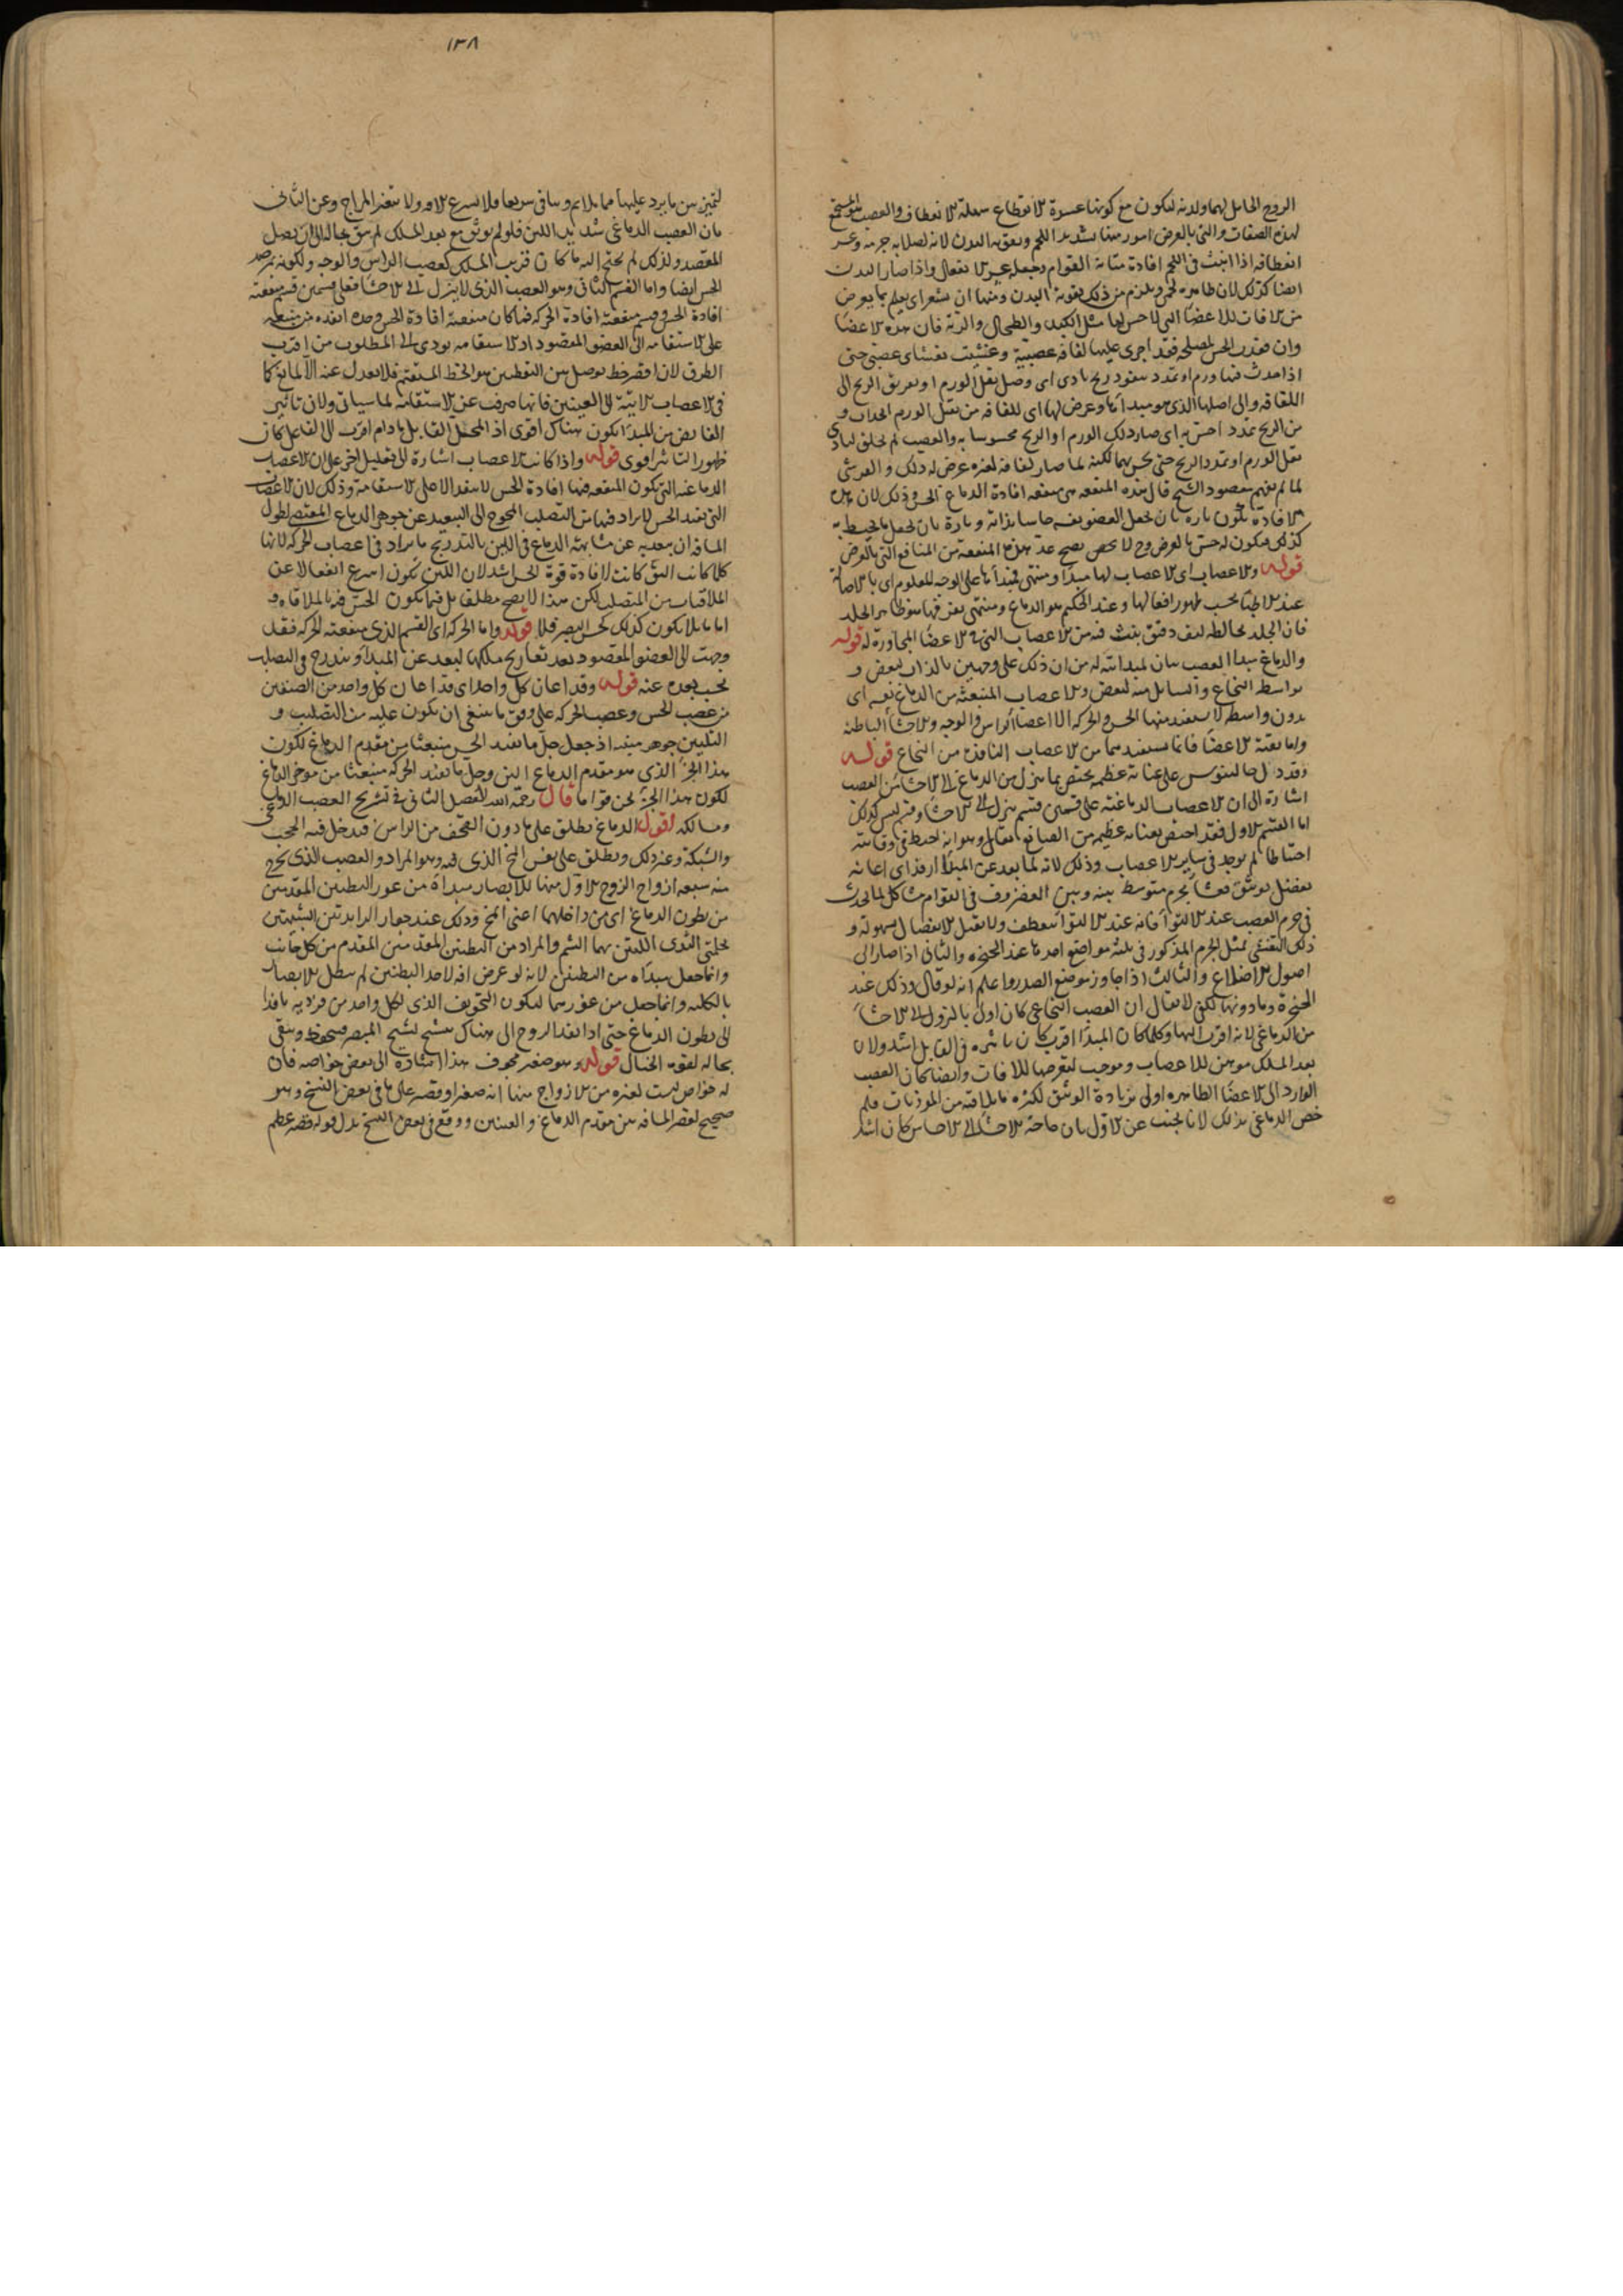 الروح الحامل لهما ولدنه ليكون مع كونها عسرة الانقطاع سهلة الانعطاف والعصب هو المستجمع
لهذه الصفات والتي بالعرض امور منها تشديد اللحم وتقوية البدن لانه لصلابة جرمه وعسر
انعطافه اذا انبث في اللحم افاده متانة القوام وجعله عسر الانفعال واذا صار البدن
ايضا كذلك لان ظاهره لحم ويلزم من ذلك تقوية البدن ومنها ان يشعر اى يعلم بما يعرض
من الافات للاعضا التي لا حس لها مثل الكبد والطحال والرية فان هذه الاعضا
وان فقدت الحس لمصلحة فقد اجرى عليها لفافة عصبية وغشيت بغشاى عصبى حتى
اذا حدث فيها ورم او تمدد بنفوذ ريح تادى اى وصل ثقل الورم او تفريق الريح الى
اللفافة والى اصلها الذى هو مبداها وعرض لها اى للفافة من ثقل الورم انجذاب و
من الريح تمدد احس به اى صار ذلك الورم او الريح محسوسا به والعصب لم يخلق لتادى
ثقل الورم او تمدد الريح حتى يحس بهما لكنه لما صار لفافة لغيره عرض له ذلك والقرشى
لما لم يفهم مقصود الشيخ قال هذه المنفعة هى منفعة افادة الدماغ الحس وذلك لان هذه
الافادة تكون تارة بان يجعل العضو نفسه حاسا بذاته وتارة بان يجعل ما يحيط به
كذلك فيكون له حس بالعرض وح لا يصح عد هذه المنفعة من المنافع التي بالعرض
قوله والاعصاب اى الاعصاب لها مبدا ومنتهى فمبداها على الوجه المعلوم اى بالاصالة
عند الاطبا بحسب ظهور افعالها وعند الحكيم هو الدماغ ومنتهى تفرقها هو ظاهر الجلد
فان الجلد يخالطه ليف دقيق ينبث فيه من الاعصاب التي في الاعضا المجاورة له قوله
والدماغ مبدا العصب بيان لمبدائيته له من ان ذلك على وجهين بالذات لبعض و
بواسطة النخاع والسايل منه لبعض والاعصاب المنبعثة من الدماغ نفسه اى
بدون واسطة لا يستفيد منها الحس والحركة الا اعضا الراس والوجه والاحشا الباطنة
واما بقية الاعضا فانها تستفيدهما من الاعصاب النافذة من النخاع قوله
وقد دل جالينوس على عناية عظيمة تختص بما ينزل من الدماغ الى الاحشا من العصب
اشارة الى ان الاعصاب الدماغية على قسمين قسم ينزل الى الاحشا وقسم ليس كذلك
اما القسم الاول فقد اختص بعناية عظيمة من الصانع تعالى وهو انه احتيط في وقايته
احتياطا لم يوجد في ساير الاعصاب وذلك لانه لما بعد عن المبدا ارفد اى اعانه
بفضل توثيق فغشى بجرم متوسط بينه وبين الغضروف في القوام مشاكل لما يحدث
في جرم العصب عند الالتوا فانه عند الالتوا ينعطف ولا يقبل الانفصال بسهولة و
ذلك التغشى بمثل الجرم المذكور في ثلثة مواضع احدها عند الحنجرة والثاني اذا صار الى
اصول الاضلاع والثالث اذا جاوز موضع الصدر واعلم انه لو قال وذلك عند
الحنجرة وما دونها لكفى لا يقال ان العصب النخاعى كان اولى بالنزول الى الاحشا
من الدماغى لانه اقرب اليها وكلما كان المبدا اقرب كان تاثيره في القابل اشد ولان
بعد المسلك موهن للاعصاب وموجب لتعرضها للافات وايضا كان العصب
الوارد الى الاعضا الظاهرة اولى بزيادة الوثق لكثرة ما يلاقيه من الموذيات فلم
خص الدماغى بذلك لانا نجيب عن الاول بان حاجة الاحشا الى الاحساس كان اشد
١٣٨
لتميز بين ما يرد عليها مما يلايم وينافى سريعا فلا يسرع الافة ولا يتغير المزاج وعن الثاني
بان العصب الدماغى شديد اللين فلو لم يوثق مع بعد المسلك لم يبق بحاله الى ان يصل
المقصد ولذلك لم يحتج اليه ما كان قريب المسلك كعصب الراس والوجه ولكونه
الحس ايضا واما القسم الثاني وهو العصب الذى لا ينزل الى الاحشا فعلى قسمين قسم منفعته
افادة الحس وقسم منفعته افادة الحركة فما كان منفعته افادة الحس وحده انفذ من منبعثه
على الاستقامة الى العضو المقصود اذ الاستقامة يودى الى المطلوب من اقرب
الطرق لان اقصر خط يوصل بين النقطتين هو الخط المستقيم فلا يعدل عنه الا لمانع كما
في الاعصاب الاتية الى العينين فانها صرف عن الاستقامة لما سياتى ولان تاثير
الفايض من المبدا يكون هناك اقوى اذ المحل القابل مادام اقرب الى الفاعل كان
ظهور التاثير اقوى قوله واذا كانت الاعصاب اشارة الى تعليل اخر على ان الاعصاب
الدماغية التي يكون المنفعة فيها افادة الحس لا ينفذ الا على الاستقامة وذلك لان الاعصاب
التي تفيد الحس لا يراد فيها من التصلب المحوج الى التبعيد عن جوهر الدماغ المقتضى لطول
المسافة ان يبعد به عن مشابهة الدماغ في اللين بالتدريج ما يراد في اعصاب الحركة لانها
كلما كانت الين كانت لافادة قوة الحس اشد لان اللين تكون اسرع انفعالا عن
الملاقيات من المتصلب لكن هذا لا يصح مطلقا بل فيما يكون الحس فيه بالملاقاة و
اما ما لا يكون كذلك كحس البصر فلا قوله واما الحركة اى القسم الذى منفعته الحركة فقد
وجهت الى العضو المقصود بعد تعاريج تسلكها ليبعد عن المبدا ويتدرج في التصلب
بحسب بعده عنه قوله وقد اعان كل واحد اى قد اعان كل واحد من الصنفين
من عصب الحس وعصب الحركة على وفق ما ينبغى ان يكون عليه من التصليب و
التليين جوهر مبدئه اذ جعل جل ما يفيد الحس منبعثا من مقدم الدماغ لكون
هذا الجزء الذي هو مقدم الدماغ الين وجل ما يفيد الحركة منبعثا من موخر الدماغ
لكون هذا الجزء اثخن قواما قال رحمه الله الفصل الثاني في تشريح العصب الدماغى
ومسالكه اقول الدماغ يطلق على ما دون القحف من الراس فيدخل فيه الحجب
والشبكة وغير ذلك ويطلق على نفس المخ الذى فيه وهو المراد والعصب الذى يخرج
منه سبعة ازواج الزوج الاول منها للابصار مبداه من غور البطنين المقدمين
من بطون الدماغ اى من داخلهما اعنى المخ وذلك عند جوار الزايدتين الشبيهتين
بحلمتى الثدى اللتين بهما الشم والمراد من البطنين المقدمين المقدم من كل جانب
وانما جعل مبداه من البطنين لانه لو عرض افة لاحد البطنين لم يبطل الابصار
بالكلية وانما جعل من غورهما ليكون التجويف الذى لكل واحد من فرديه نافذا
الى بطون الدماغ حتى اذا نفذ الروح الى هناك متشبح لشبح المبصر فيحفظ ويبقى
بحاله لقوة الخيال قوله وهو صغير مجوف هذا اشارة الى بعض خواصه فان
له خواص ليست لغيره من الازواج منها انه صغير او قصير على ما في بعض النسخ وهو
صحيح لقصر المسافة بين مقدم الدماغ والعينين ووقع في بعض النسخ بدل قوله صغير عظيم